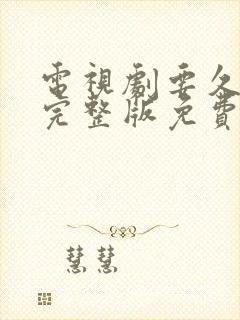 電視劇要久
完整版免費
慧慧